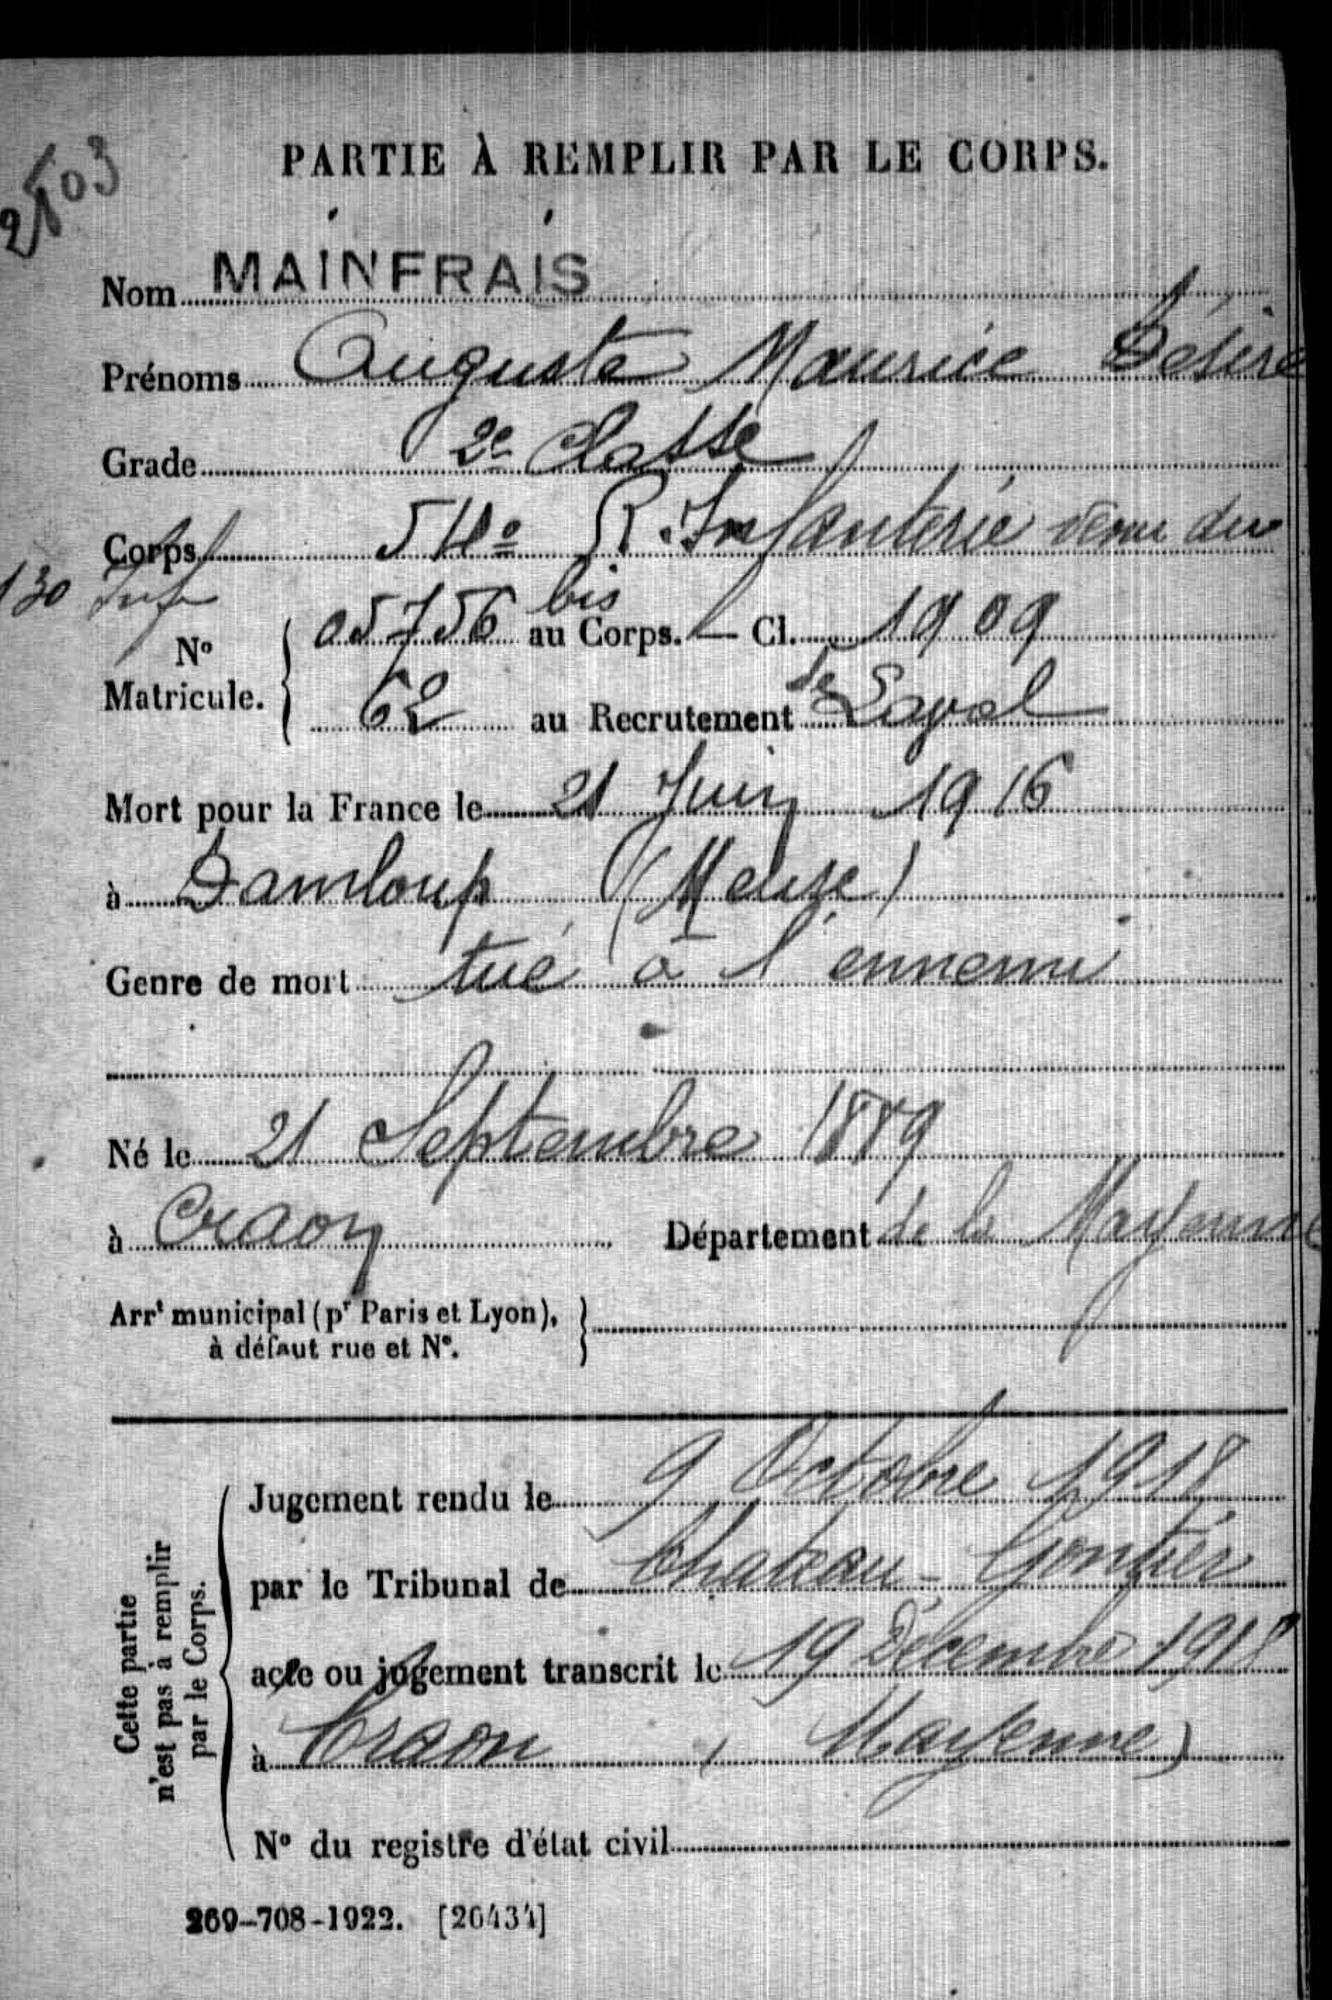 2503
PARTIE À REMPLIR PAR LE CORPS.
Nom MAINFRAIS
Prénoms Auguste Maurice Désiré
Grade 2e Classe
Corps R. Infanterie venu du
130 Inf
N° Matricule. 05756 bis au Corps. — Cl. 1909
62 au Recrutement de Laval
Mort pour la France le 21 Juin 1916
à Damloup (Meuse)
Genre de mort tué à l'ennemi
Né le 21 Septembre 1889
à Craon Département de la Mayenne
Arrt municipal (pr Paris et Lyon),
à défaut rue et N°.
Cette partie
n'est pas à remplir
par le Corps.
Jugement rendu le 9 Octobre 1918
par le Tribunal de Chateau-Gontier
acte ou jugement transcrit le 19 Décembre 1918
à Craon (Mayenne)
N° du registre d'état civil
269-708-1922. [26434]